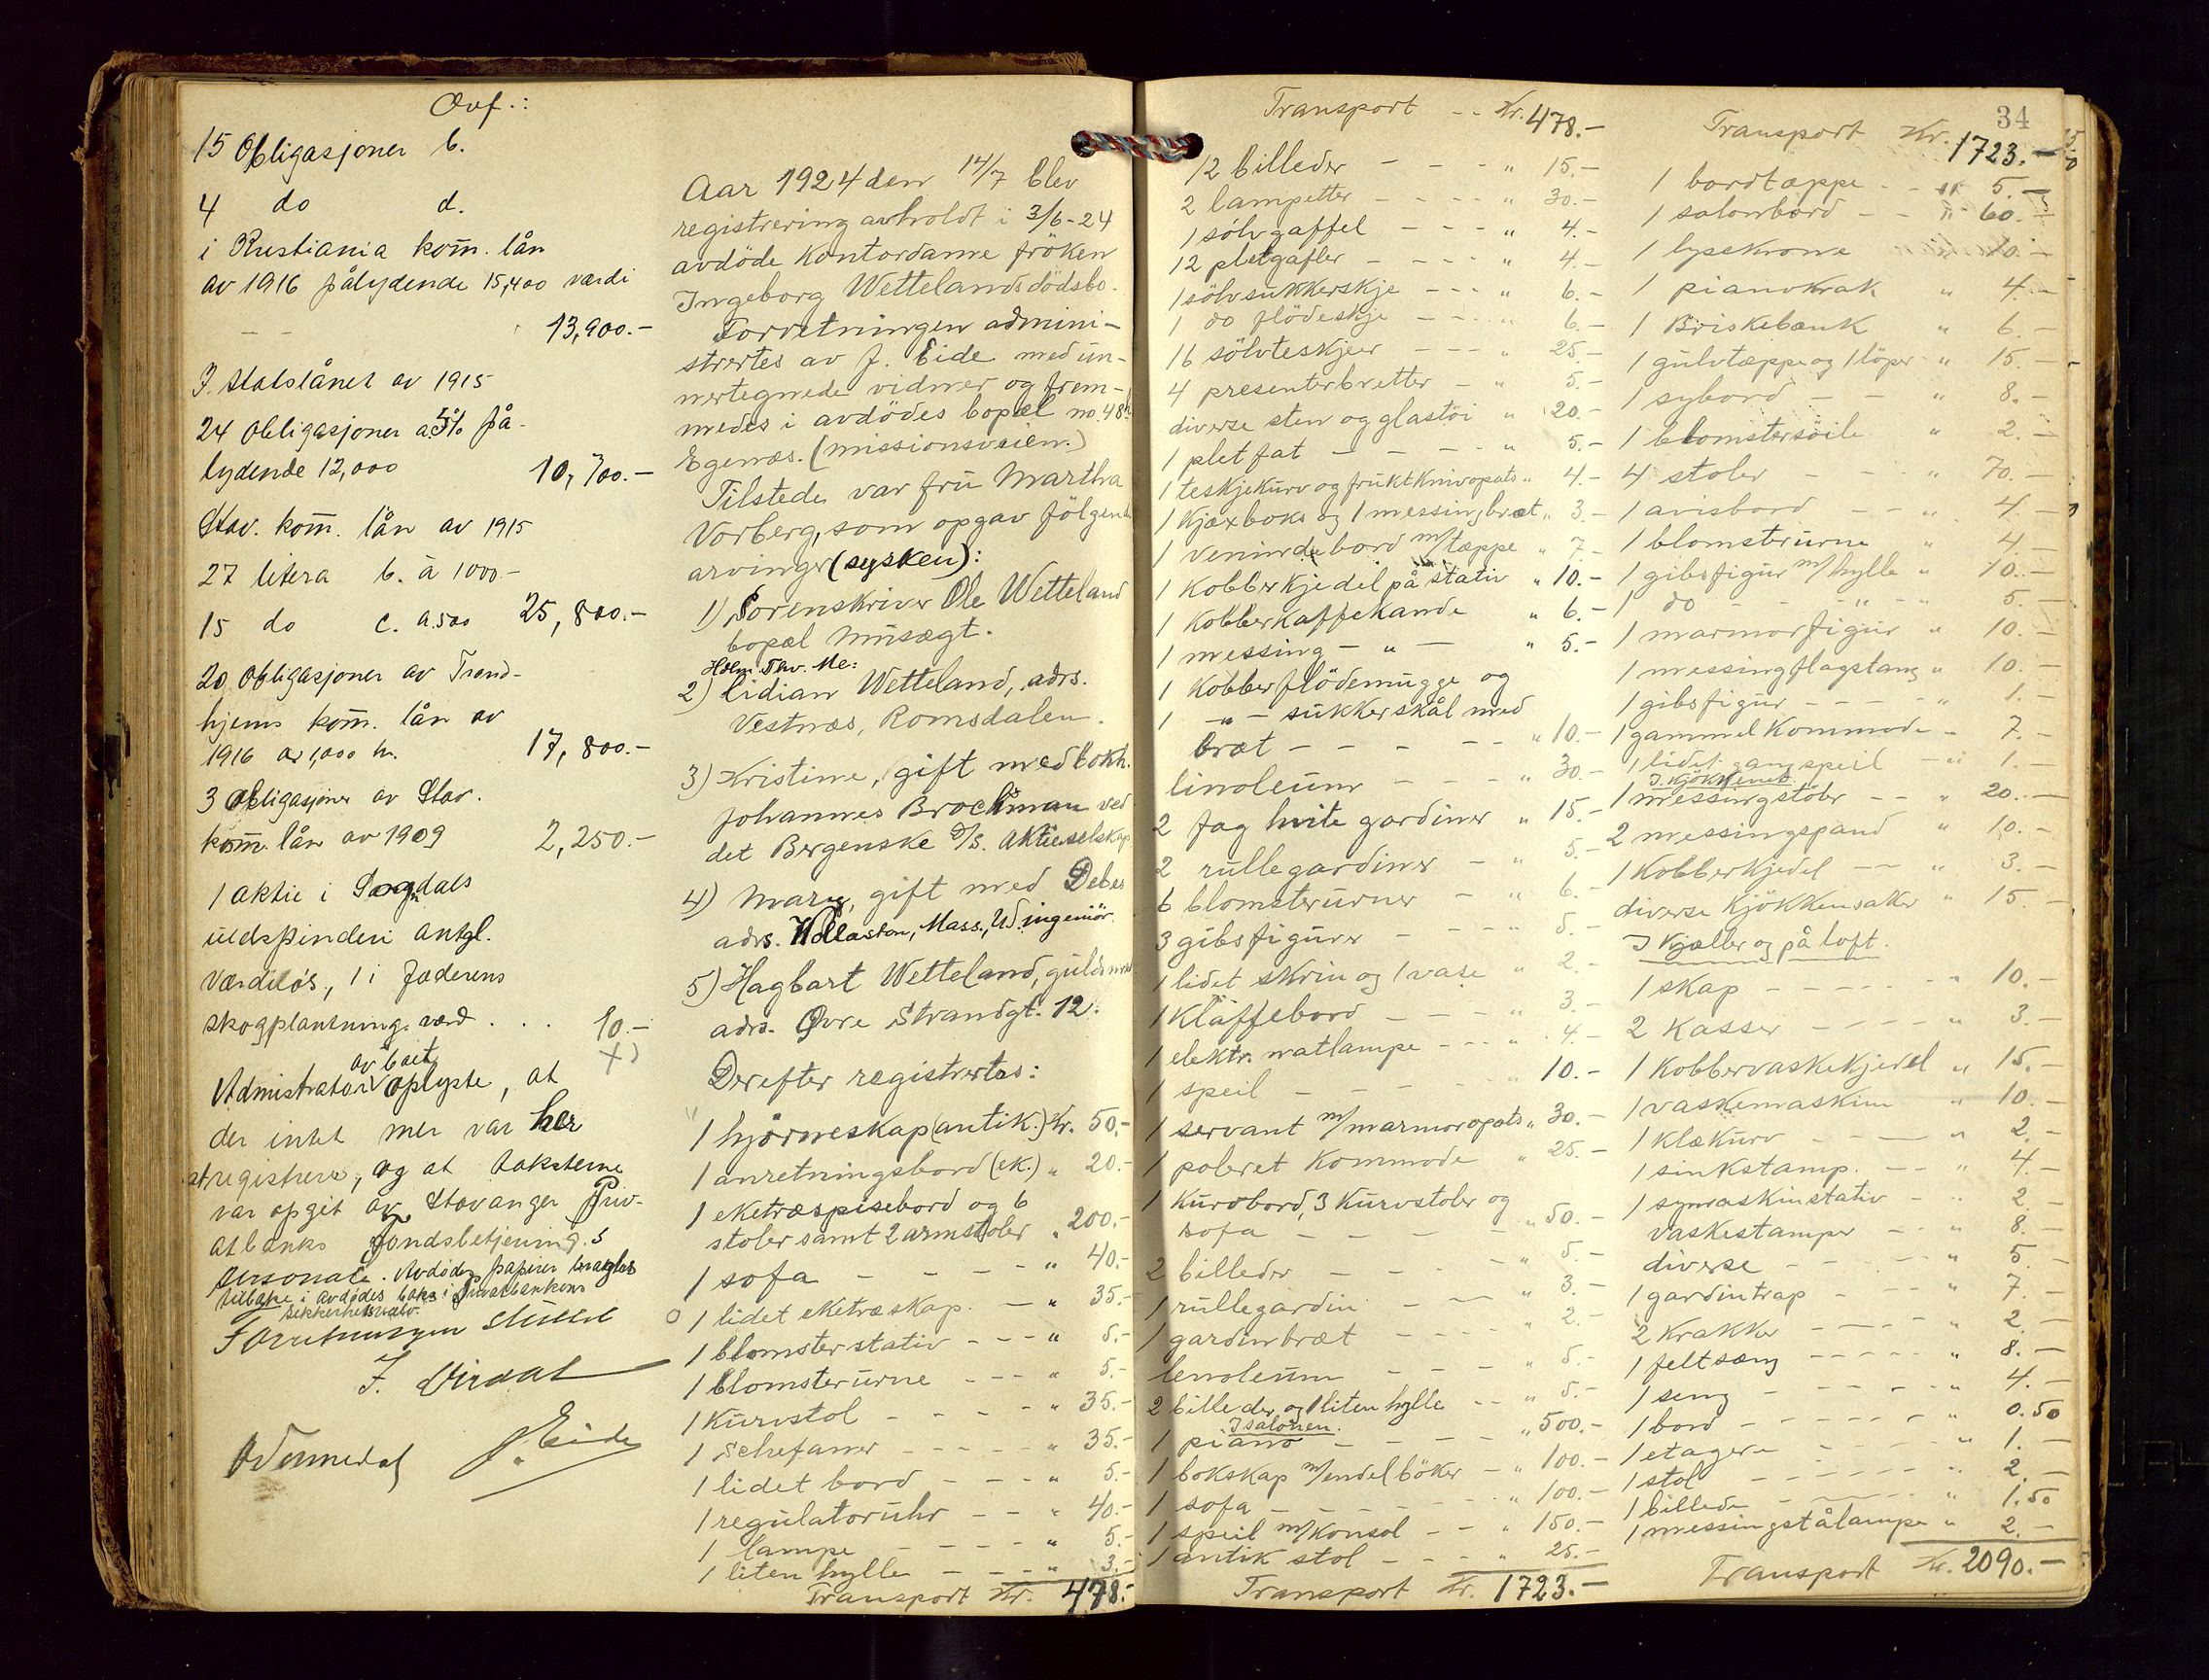 Ovf.:
15 Obligasjoner b.
4 do d.
i Kristiania kom̄. lån
av 1916 pålydende 15,400 værdi
13,900.-
I statslånet av 1915
24 obligasjoner a 5% på-
lydende 12,000 10,700.-
Stav. kom̄. lån av 1915
27 litera b. à 1000.-
15 do c. a 500 25,800.-
20 obligasjoner av Trond-
hjems kom̄. lån av
1916 a 1,000 kr. 17,800.-
3 Obligasjoner av Stav.
kom̄. lån av 1909 2,250.-
1 aktie i Sogndals
uldspinderi antgl.
værdiløs, 1 i Jæderens
skogplantning værd . . . 10.-
+)
Administrator av boet oplyste, at
der intet mer var her
at registrere, og at taksterne
var opgit av Stavanger Priv-
atbanks fondsbetjening.s
personale. Avdødes papirer bragtes
tilbake i avdødes boks i Privatbankens
sikkerhetshvælv.
Forretningen sluttet
J. Eide
Aar 1924 den 14/7 blev
registrering avholdt i 3/6-24
avdöde Kontordame fröken
Ingeborg Wettelands dödsbo.
Forretningen admini-
strertes av J. Eide med un-
nertegnede vidner og frem-
medes i avdödes bopæl no. 48
Egenæs. (missionsveien.)
Tilstede var fru Martha
Vorberg, som opgav fölgende
arvinger (sysken):
1) Sorenskriver Ole Wetteland
bopæl Musægt.
Holm. Thv. Me:
2) Lidian Wetteland, adrs.
Vestnæs, Romsdalen.
3) Kristine, gift med bokh.
Johannes Brockman ved
det Bergenske D/S. Aktieselskap
4) Mary, gift med Debes
adrs. Wollaston, Mass., US. ingeniör.
5) Hagbart Wetteland, guldsmed
adrs. Øvre Strandgt. 12.
Derefter registrertes:
1 hjörneskap (antik.) Kr. 50.-
1 anretningsbord (ek.) " 20.-
1 eketræspisebord og 6
stoler samt 2 armstoler " 200.-
1 sofa - - - - " 40.-
1 lidet eketræskap. - " 35.-
1 blomsterstativ - - - " 5.-
1 blomsterurne - - - " 5.-
1 Kurvstol - - - - " 35.-
1 Schefaner - - - - " 35.-
1 lidet bord - - - " 5.-
1 regulatoruhr - - " 40.-
1 lampe - - - - " 5.-
1 liten hylle - - - " 3.-
Transport Kr. 478.-
Transport - - Kr. 478.-
12 billeder - - - " 15.-
2 lampetter - - - - " 30.-
1 sölvgaffel - - - " 4.-
12 pletgafler - - - - " 4.-
1 sölvsukkerskje - - - " 6.-
1 do flödeskje - - - " 6.-
16 sölvteskjeer - - - " 25.-
4 presenterbretter - " 5.-
diverse sten og glastöi " 20.-
1 pletfat - - - - " 5.-
1 teskjekurv og fruktknivopsats " 4.-
1 Kjæxboks og 1 messingbræt " 3.-
1 Venindebord m/tæppe " 7.-
1 Kobberkjedel på stativ " 10.-
1 Kobberkaffekande " 6.-
1 messing - " - " 5.-
1 Kobberflödemugge og
1 - " - sukkerskål med
bræt - - - - - " 10.-
linoleum - - - - " 30.-
2 fag hvite gardiner " 15.-
2 rullegardiner - " 5.-
6 blomsterurner - " 6.-
3 gibsfigurer - - - " 5.-
1 lidet skrin og 1 vase " 2.-
1 Klaffebord - - - " 3.-
1 elektr. natlampe - - - " 4.-
1 speil - - - - " 10.-
1 servant m/marmoropsats " 30.-
1 poleret Kommode " 25.-
1 Kurvbord, 3 Kurvstoler og
sofa - - - - - " 50.-
2 billeder - - - - " 5.-
1 rullegardin - - " 3.-
1 gardinbræt - - - " 2.-
lenoleum - - - " 5.-
2 billeder og 1 liten hylle - - " 5.-
I salonen.
1 piano - - - - " 500.-
1 bokskap m/endel böker - " 100.-
1 sofa - - - - - - " 100.-
1 speil m/Konsol - - " 150.-
1 antik stol - - - " 25.-
Transport Kr. 1723.-
34
Transport Kr. 1723.-
1 bordtæppe - - " 5.-
1 salonbord - - " 60.-
1 lysekrone 10.-
1 pianokrak " 4.-
1 Briskebænk " 6.-
1 gulvtæppe og 1 löper " 15.-
1 sybord - - " 8.-
1 blomstersöile " 2.-
4 stoler - - " 70.-
1 avisbord - - " 4.-
1 blomsterurne " 4.-
1 gibsfigur m/hylle " 10.-
1 do - " - " 5.-
1 marmorfigur " 10.-
1 messingflagstang " 10.-
1 gibsfigur - - - " 1.-
1 gammel Kommode - 7.-
1 lidet gangspeil - " 1.-
I Kjökkenet.
1 messingstöber - - " 20.-
2 messingspand " 10.-
1 Kobberkjedel - - " 3.-
diverse Kjökkensaker " 15.-
I Kjæller og på loft.
1 skap - - - - - " 10.-
2 Kasser - - - - " 3.-
1 Kobbervaskekjedel " 15.-
1 vaskemaskine " 10.-
1 Klækurv - - - - " 2.-
1 sinkstamp. - - " 4.-
1 symaskinstativ - " 2.-
vaskestamper - " 8.-
diverse - - - - " 5.-
1 gardintrap - - " 7.-
2 Krakker - - - - " 2.-
1 feltsæng - - - - - " 8.-
1 seng - - - - - " 4.-
1 bord - - - - - - " 0.50
1 etagere - - - - " 1.-
1 stol - - - - - " 2.-
1 billede - - - - " 1.50
1 messingstålampe " 2.-
Transport Kr. 2090.-